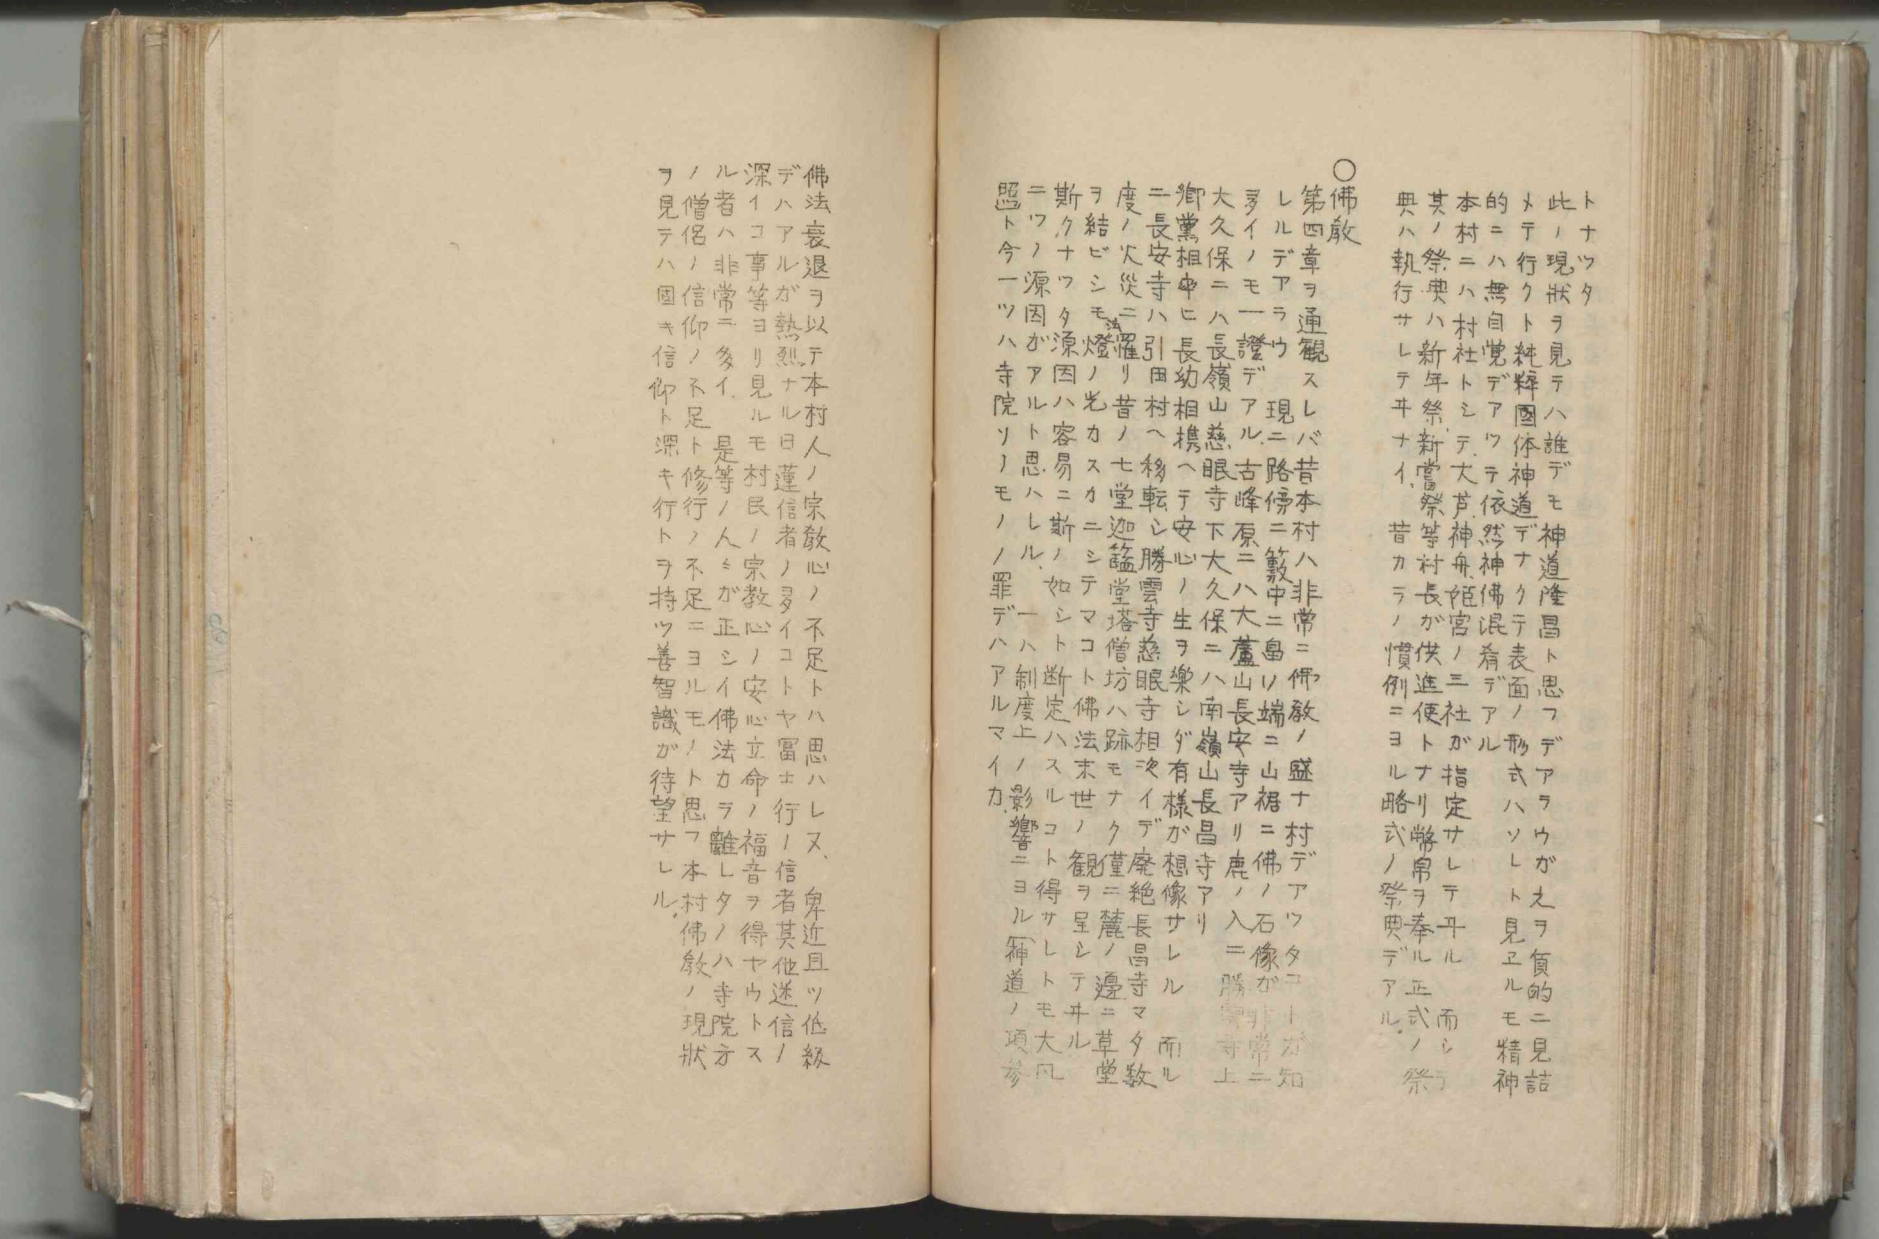 トナツタ
此ノ現狀ヲ見テハ誰デモ神道隆昌ト思フデアラウガ之ヲ負的ニ見詰
メテ行クト純粹國体神道デナクテ表面ノ形式ハソレト見ヱルモ精神
的ニハ無自覚デアツテ依然神佛混肴デアル
本村ニハ村社トシテ大芦神舟姫宮ノ三社が指定サレテ井ル 而シテ
其ノ祭典ハ新年祭.新嘗祭等村長が供進使トナリ幣帛ヲ奉ル正式ノ祭
典ハ執行サレテヰナイ、昔カラノ慣例ニヨル略式ノ祭典デアル.
〇佛教
第四章ヲ通観スレバ昔本村ハ非常ニ佛教ノ盛ナ村デアツタコトガ知
レルデアラウ 現ニ路傍ニ藪中ニ畠ノ端ニ山裾ニ佛ノ石像が非常ニ
多イノモ一證デアル.古峰原ニハ大蘆山長安寺アリ鹿ノ入ニ勝雲寺上
大久保ニハ長嶺山慈眼寺下大久保ニハ南嶺山長昌寺アリ
鄉黨相率ヒ長幼相携ヘテ安心ノ生ヲ樂シダ有様が想像サレル 而ル
ニ長安寺ハ引田村ヘ移転シ勝雲寺慈眼寺相次イデ廃絶長昌寺マタ数
度ノ火災ニ罹リ昔ノ七堂迦籃堂塔僧坊ハ跡モナク僅ニ麓ノ邊ニ草堂
ヲ結ビシモ法燈ノ光カスカニシテマコト佛法末世ノ観ヲ呈シテヰル
斯クナツタ源因ハ容易ニ斯ノ如シト断定ハスルコト得サレトモ大凡
ニツノ源因がアルト思ハレル.一ハ制度上ノ影響ニヨル(神道ノ項参
照)ト今一ツハ寺院ソノモノノ罪デハアルマイカ.
佛法衰退ヲ以テ本村人ノ宗教心ノ不足トハ思ハレヌ、卑近且ツ低級
デハアルガ熱烈ナル日蓮信者ノ多イコトヤ冨士行ノ信者其他迷信ノ
深イコ事等ヨリ見ルモ村民ノ宗教心ノ安心立命ノ福音ヲ得ヤウトス
ル者ハ非常ニ多イ.是等ノ人々が正シイ佛法カラ離レタノハ寺院方
ノ僧侶ノ信仰ノ不足ト修行ノ不足ニヨルモノト思フ本村佛教ノ現狀
ヲ見テハ固キ信仰ト深キ行トヲ持ツ善智識が待望サレル.